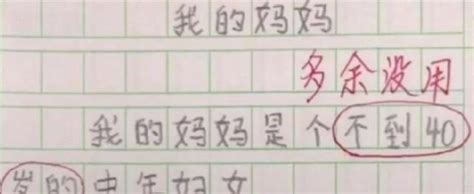 我的妈妈
多余没用
我的妈妈是个不到40
岁的中年妇女